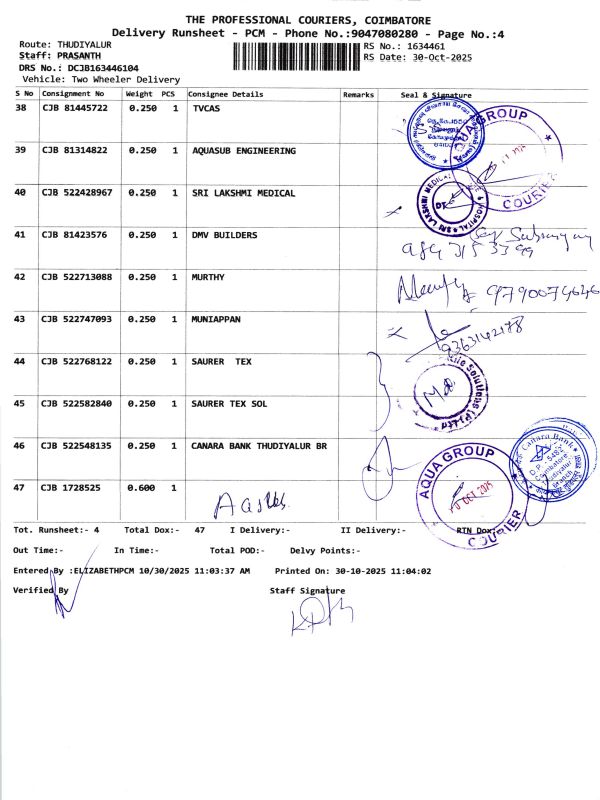 THE PROFESSIONAL COURIERS, COIMBATORE
Delivery Runsheet - PCM - Phone No.:9047080280 - Page No.:4
Route: THUDIYALUR RS No.: 1634461
Staff: PRASANTH RS Date: 30-Oct-2025
DRS No.: DCJB163446104
Vehicle: Two Wheeler Delivery
S No Consignment No Weight PCS Consignee Details Remarks Seal & Signature
38 CJB 81445722 0.250 1 TVCAS
39 CJB 81314822 0.250 1 AQUASUB ENGINEERING
AQUA GROUP
COURIER
40 CJB 522428967 0.250 1 SRI LAKSHMI MEDICAL
SRI LAKSHMI MEDICAL & HOSPITAL
41 CJB 81423576 0.250 1 DMV BUILDERS
42 CJB 522713088 0.250 1 MURTHY
9790074646
43 CJB 522747093 0.250 1 MUNIAPPAN
9363142188
44 CJB 522768122 0.250 1 SAURER TEX
Solutions (P) Ltd
45 CJB 522582840 0.250 1 SAURER TEX SOL
46 CJB 522548135 0.250 1 CANARA BANK THUDIYALUR BR
Canara Bank
Coimbatore
Thudiyalur
Branch
47 CJB 1728525 0.600 1
AQUA GROUP
OCT 2025
COURIER
Tot. Runsheet:- 4 Total Dox:- 47 I Delivery:- II Delivery:- RTN Dox:
Out Time:- In Time:- Total POD:- Delvy Points:-
Entered By :ELIZABETHPCM 10/30/2025 11:03:37 AM Printed On: 30-10-2025 11:04:02
Verified By Staff Signature